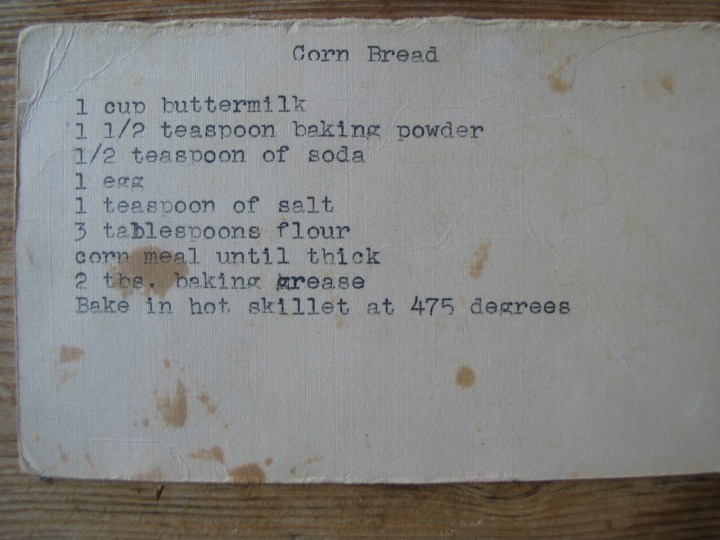 Corn Bread
1 cup buttermilk
1 1/2 teaspoon baking powder
1/2 teaspoon of soda
1 egg
1 teaspoon of salt
3 tablespoons flour
corn meal until thick
2 tbs. baking grease
Bake in hot skillet at 475 degrees